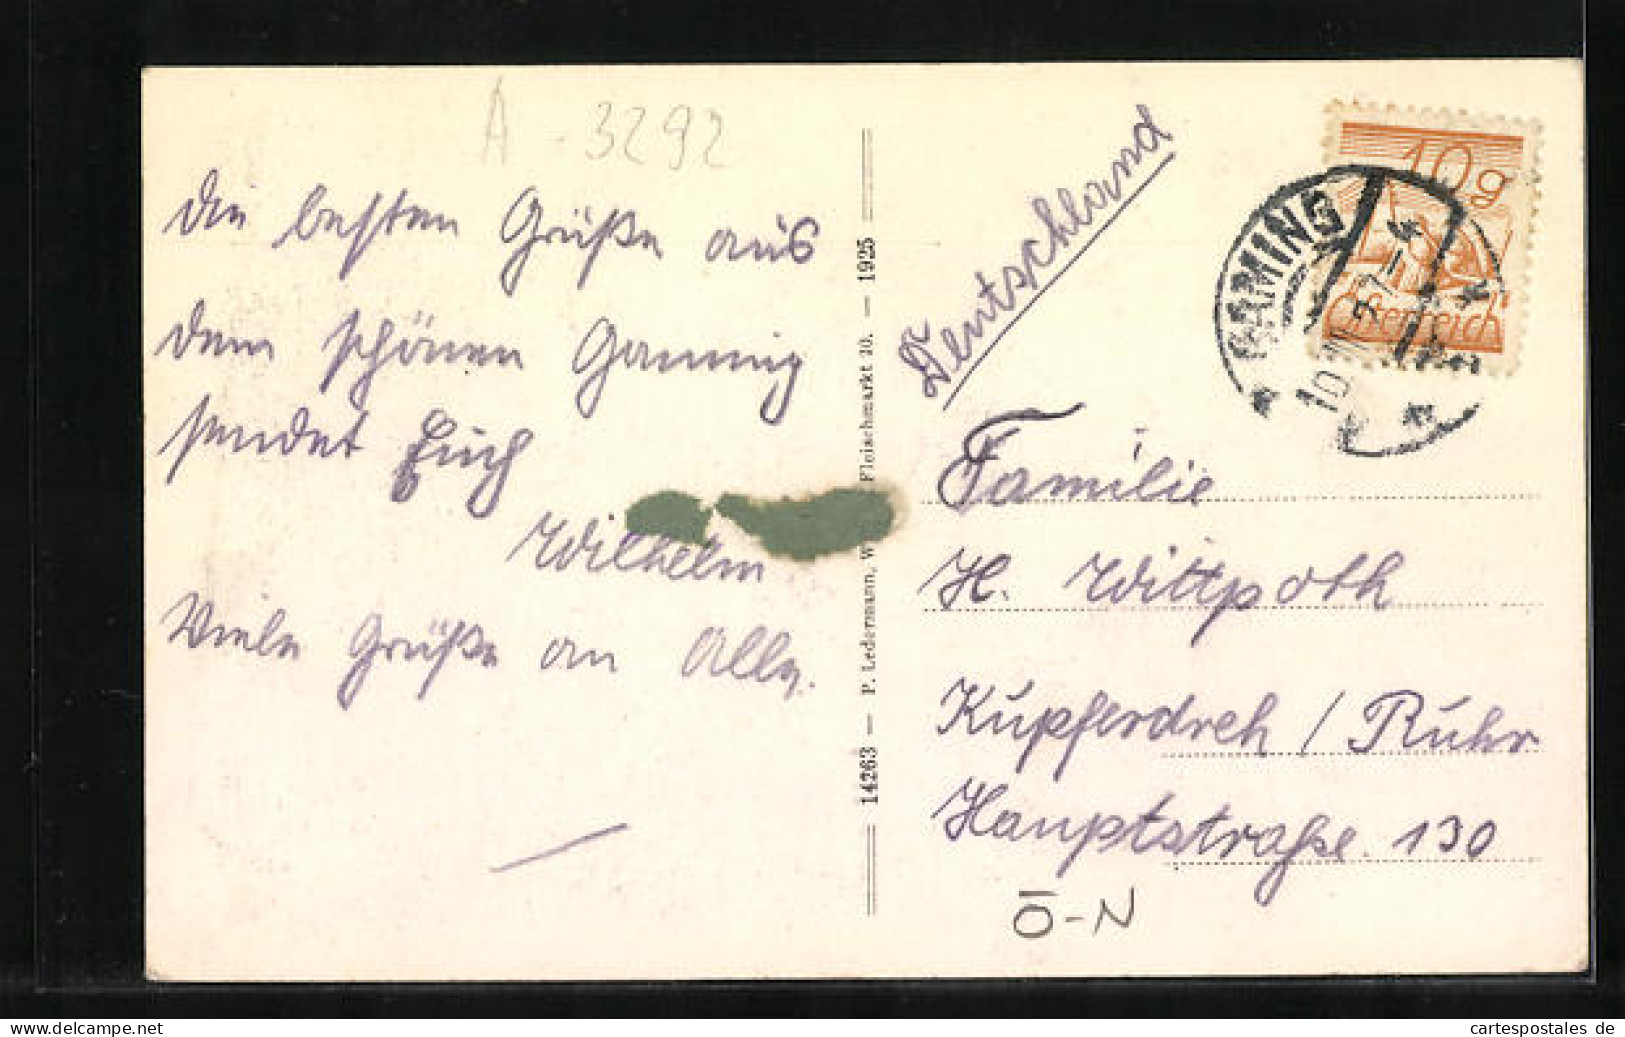 A - 3292
Die besten Grüße aus
dem schönen Gaming
sendet Euch
Wilhelm
Viele Grüße an Alle.
14263 — P. Ledermann, Fleischmarkt 20. — 1925
Deutschland
10g
Österreich
GAMING
Familie
H. Wittpoth
Kupferdreh / Ruhr
Hauptstraße 130
Ö-N
www.delcampe.net
cartespostales de